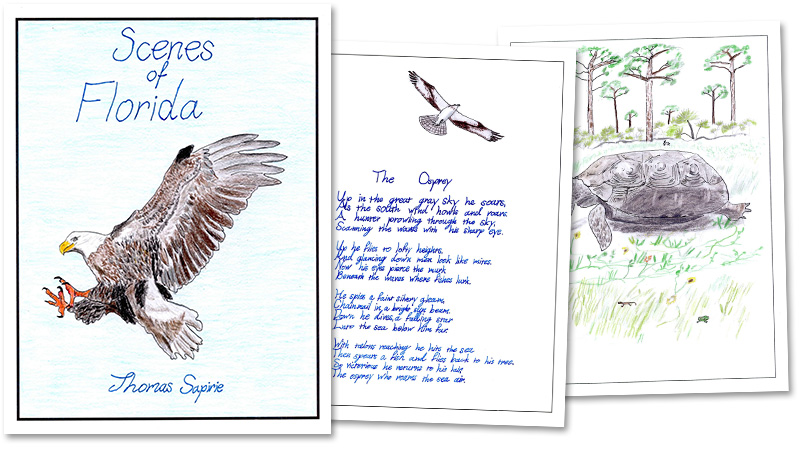 Scenes
of
Florida
Thomas Sapirie
The Osprey
Up in the great gray sky he soars,
As the south wind howls and roars.
A hunter prowling through the sky,
Scanning the waves with his sharp eye.
Up he flies to lofty heights,
And glancing down men look like mites.
Now his eyes pierce the murk
Beneath the waves where fishes lurk.
He spies a faint silvery gleam,
Chainmail in a bright sun beam.
Down he dives, a falling star
Into the sea below him far.
With talons reaching he hits the sea
Then spears a fish and flies back to his tree.
So victorious he returns to his lair,
The osprey who roams the sea air.